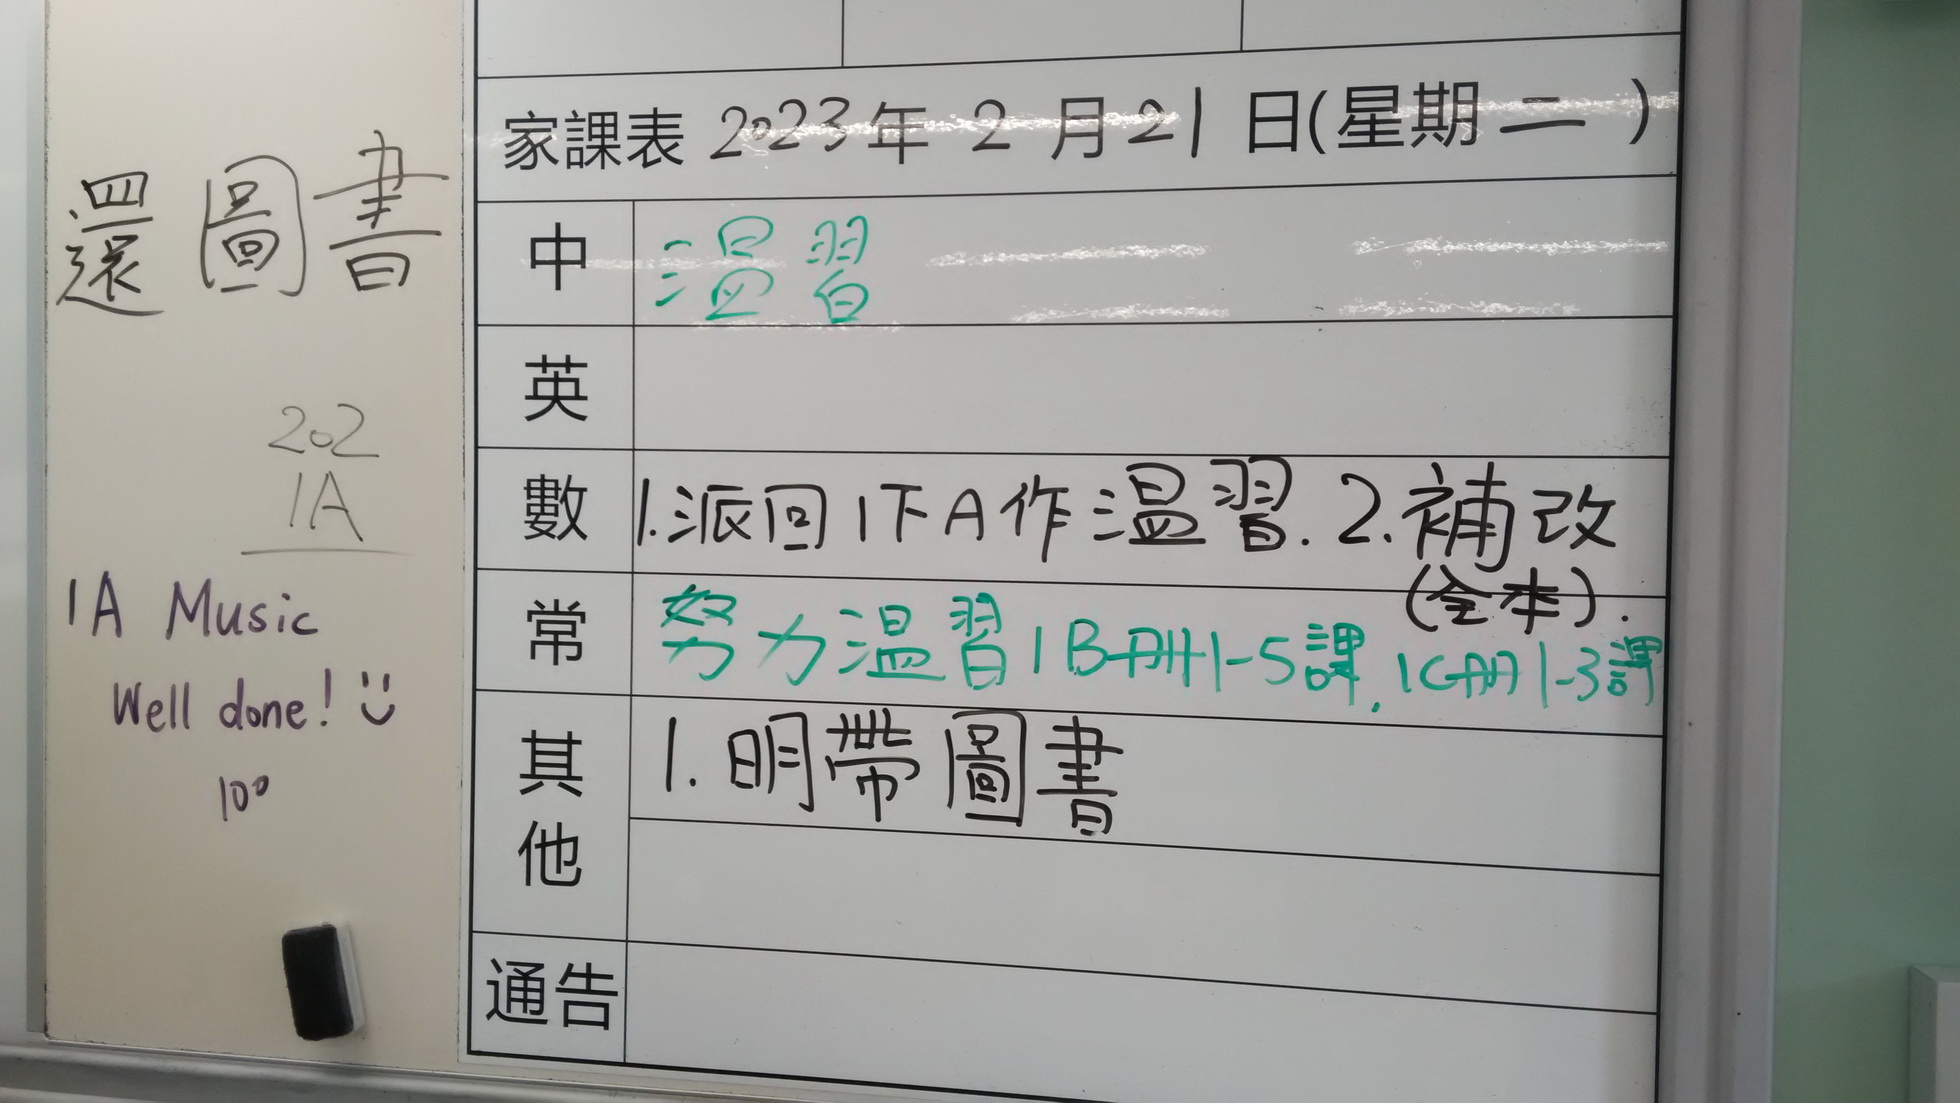 還圖書
202
1A
1A Music
Well done!
100
家課表 2023年 2 月 21 日(星期 二 )
中 温習
英
數 1.派回1下A作温習. 2.補改
(全本).
常 努力温習1B冊1-5課, 1C冊1-3課
其他 1.明帶圖書
通告